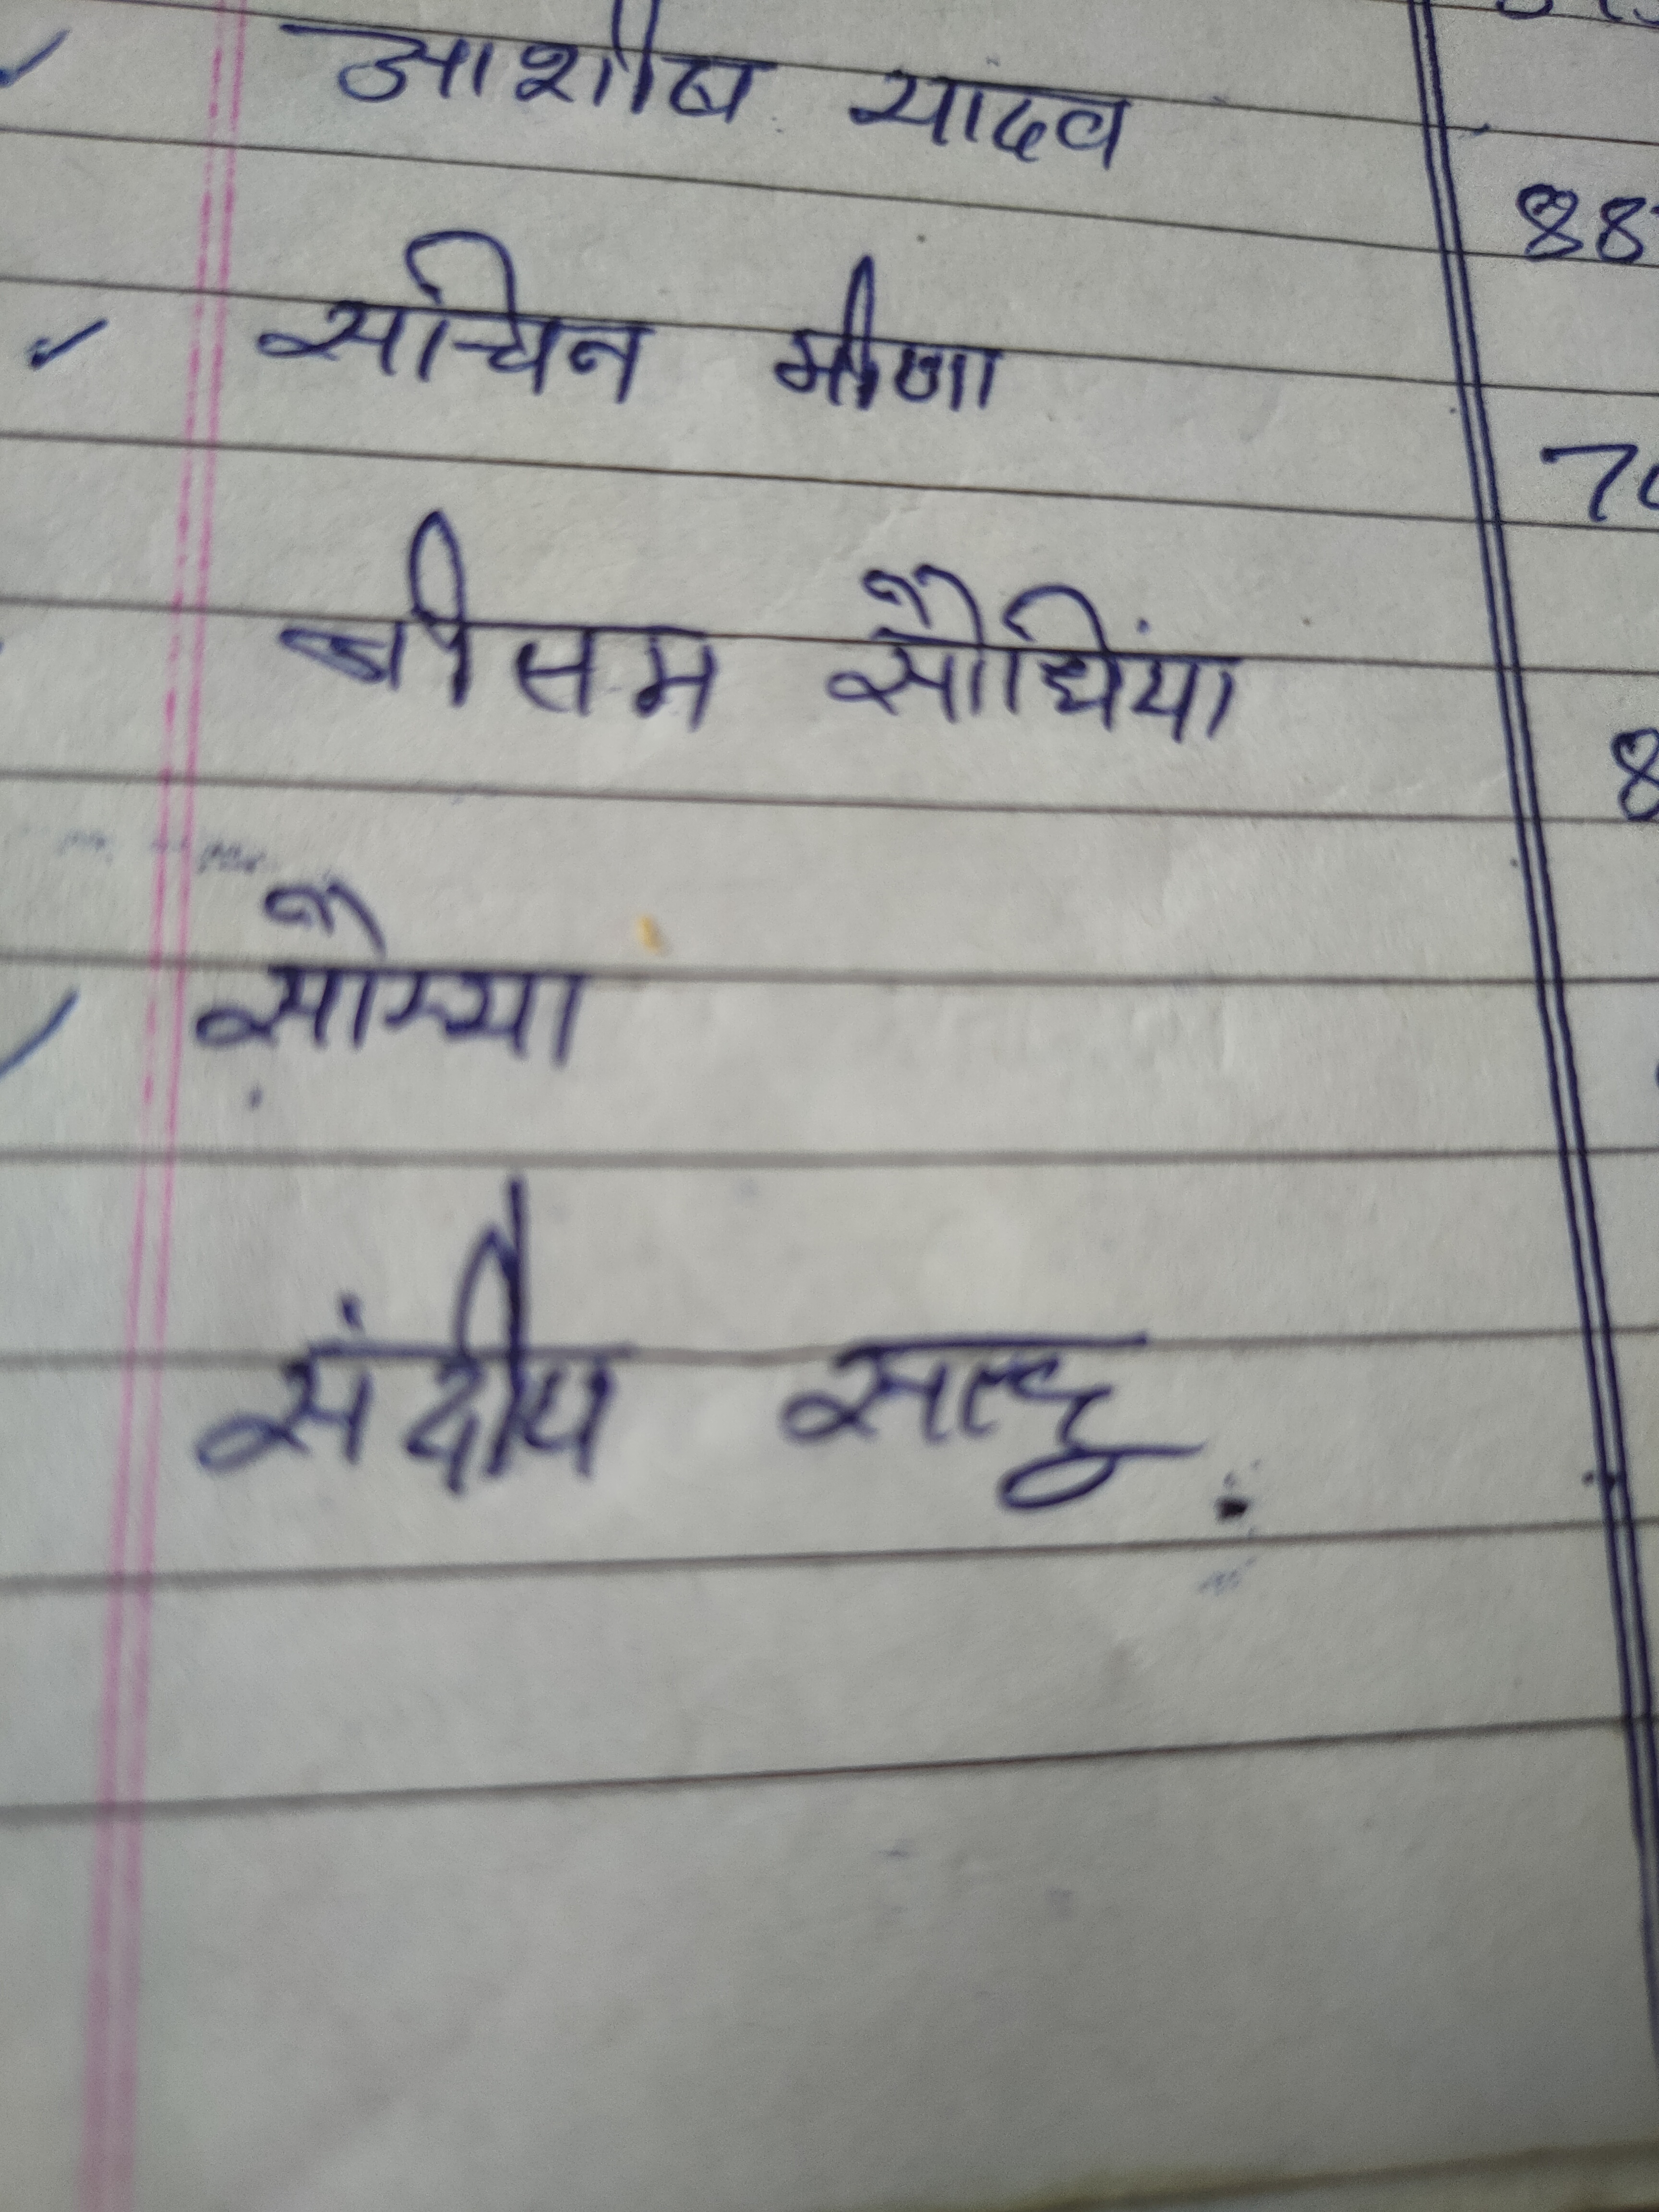 आशीष यादव
88
सचिन मीणा
70
सौंधिया
8
सौम्या
संदीप